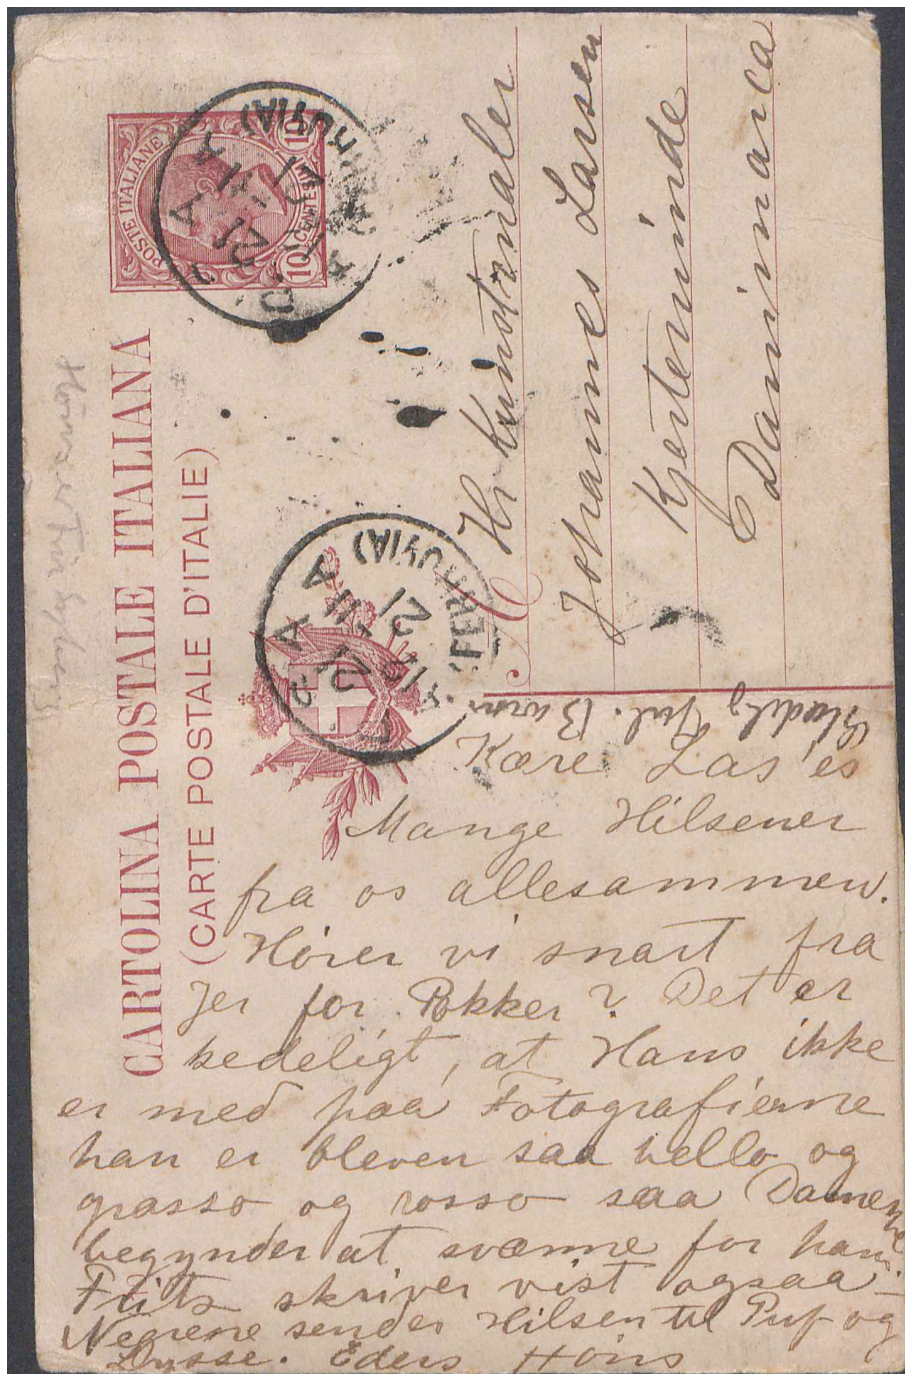 CARTOLINA POSTALE ITALIANA
(CARTE POSTALE D'ITALIE)
POSTE ITALIANE
10 CENTESIMI 10
(FERROVIA)
21
(FERROVIA)
Hr Kunstmaler
Johannes Larsen
Kjerteminde
Danimarca
Kære Las'es
Mange Hilsener
fra os allesammen.
Hører vi snart fra
Jer for Pokker? Det er
kedeligt, at Hans ikke
er med paa Fotografierne
han er bleven saa bello og
grasso og rosso saa Damerne
begynder at sværme for ham.
Fritz skriver vist ogsaa –
Negrene sender Hilsen til Puf og
Lysse. Eders Höns